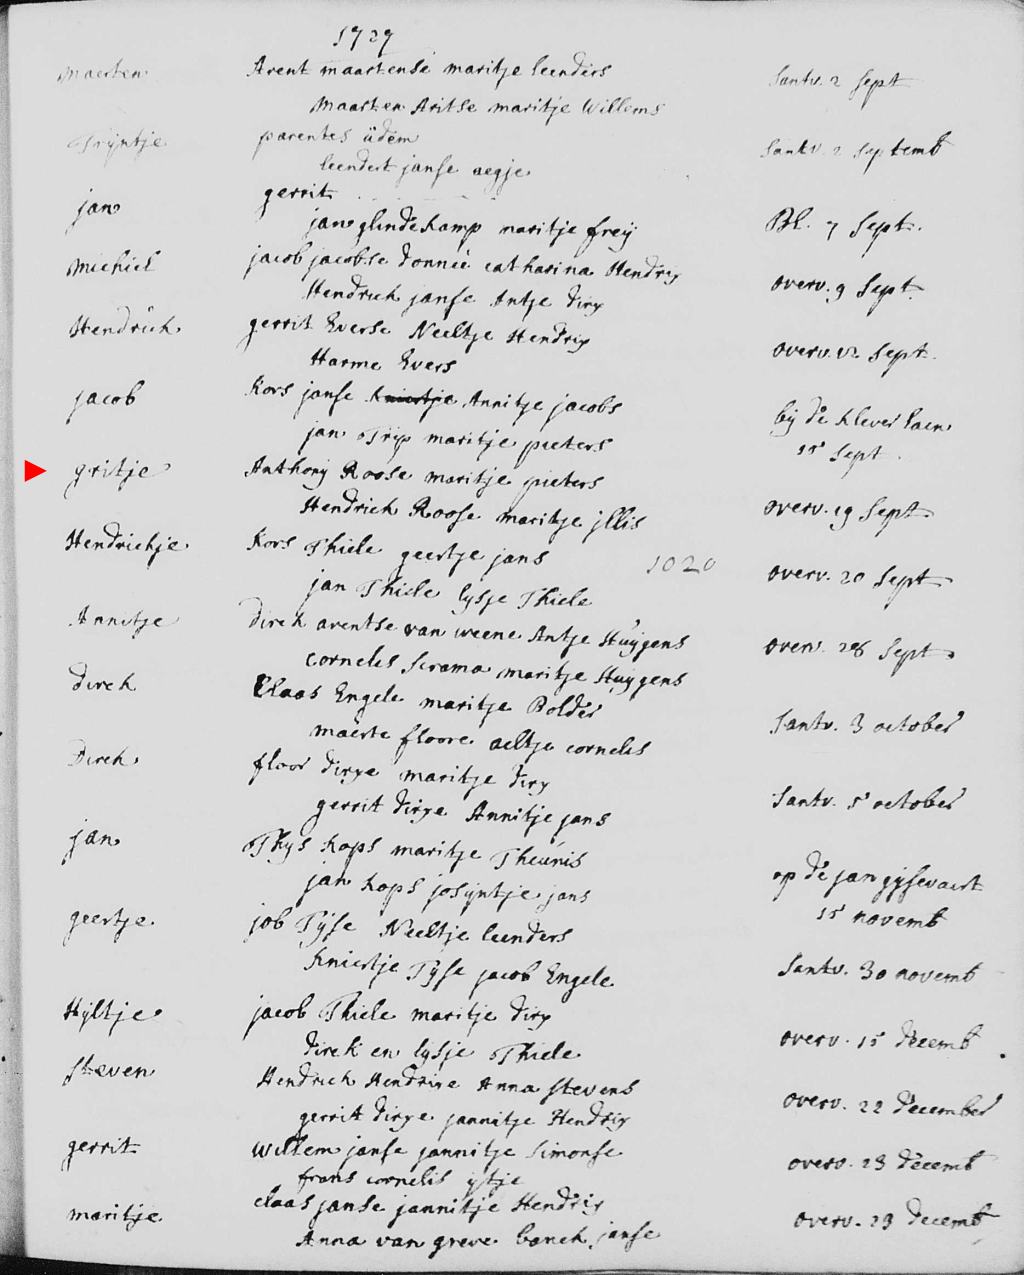 1729
Maerten Arent maartense maritje leenders Santv. 2 Sept
Maarten Aritse maritje Willems
Trijntje parentes üdem Santv. 2 Septemb
leendert janse aegje
jan gerrit
jan glindekamp maritje freÿ Bl. 7 Sept.
Michiel jacob jacobse Donnié catharina Hendrix
Hendrick janse Antje Dirx overv. 9 Sept.
Hendrick gerrit Everse Neeltje Hendrix
Harme Evers overv. 12 Sept.
jacob Kors janse Kniertje Annitje jacobs bij de Klever laen
jan Trip maritje pieters 15 Sept.
gritje Anthonij Roose maritje pieters
Hendrick Roose maritje jllis overv. 19 Sept
Hendrickje Kors Thiele geertje jans 1020
jan Thiele lysje Thiele overv. 20 Sept
Annitje Dirck arentse van weene Antje Huÿgens
cornelis Scrama maritje Huÿgens overv. 28 Sept
Dirck Claas Engele maritje Bolder
maerte floore aeltje cornelis Santv. 3 october
Dirck floor Dirxe maritje Dirx
gerrit Dirxe Annitje jans Santv. 5 october
jan Thijs Kops maritje Theünis
jan Kops josijntje jans op de jan gijsevaert
15 novemb
geertje job Tijse Neeltje leenders
Kniertje Tijse jacob Engele Santv. 30 novemb
Hyltje jacob Thiele maritje Dirx
Dirck en lysje Thiele overv. 15 Decemb
Steven Hendrick Hendrixe Anna Stevens
gerrit Dirxe jannitje Hendrix overv. 22 December
gerrit Willem janse jannitje Simonse
frans cornelis ijtje overv. 23 Decemb
maritje claas janse jannitje Hendrix
Anna van greve barick janse overv. 23 Decemb